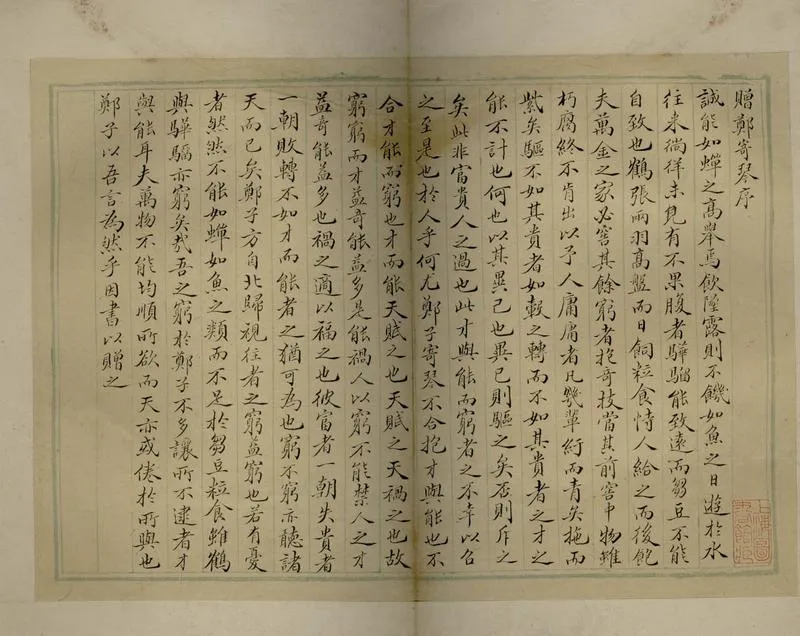 贈鄭寄琴序
誠能如蟬之高舉焉飲墮露則不饑如魚之日遊於水
往来徜徉未見有不果腹者驊騮能致遠而芻豆不能
自致也鶴張兩羽高盤而日飼粒食恃人給之而後飽
夫萬金之家必窖其餘窮者抱奇技當其前窖中物雖
朽腐終不肯出以予人庸庸者凡幾輩紆而青矣拖而
紫矣驅不如其貴者如轂之轉而不如其貴者之才之
能不計也何也以其異己也異己則驅之矣否則斥之
矣此非富貴人之過也此才與能而窮者之不幸以召
之至是也於人乎何尤鄭子寄琴不合抱才與能也不
合才能而窮也才而能天賦之也天賦之天禍之也故
窮窮而才益奇能益多是能禍人以窮不能禁人之才
益奇能益多也禍之適以福之也彼富者一朝失貴者
一朝敗轉不如才而能者之猶可為也窮不窮亦聽諸
天而已矣鄭子方自北歸視往者之窮益窮也若有憂
者然然不能如蟬如魚之類而不足於芻豆粒食雖鶴
與驊騮亦窮矣哉吾之窮於鄭子不多讓所不逮者才
與能耳夫萬物不能均順所欲而天亦或倦於所與也
鄭子以吾言為然乎因書以贈之
上海圖
書館藏